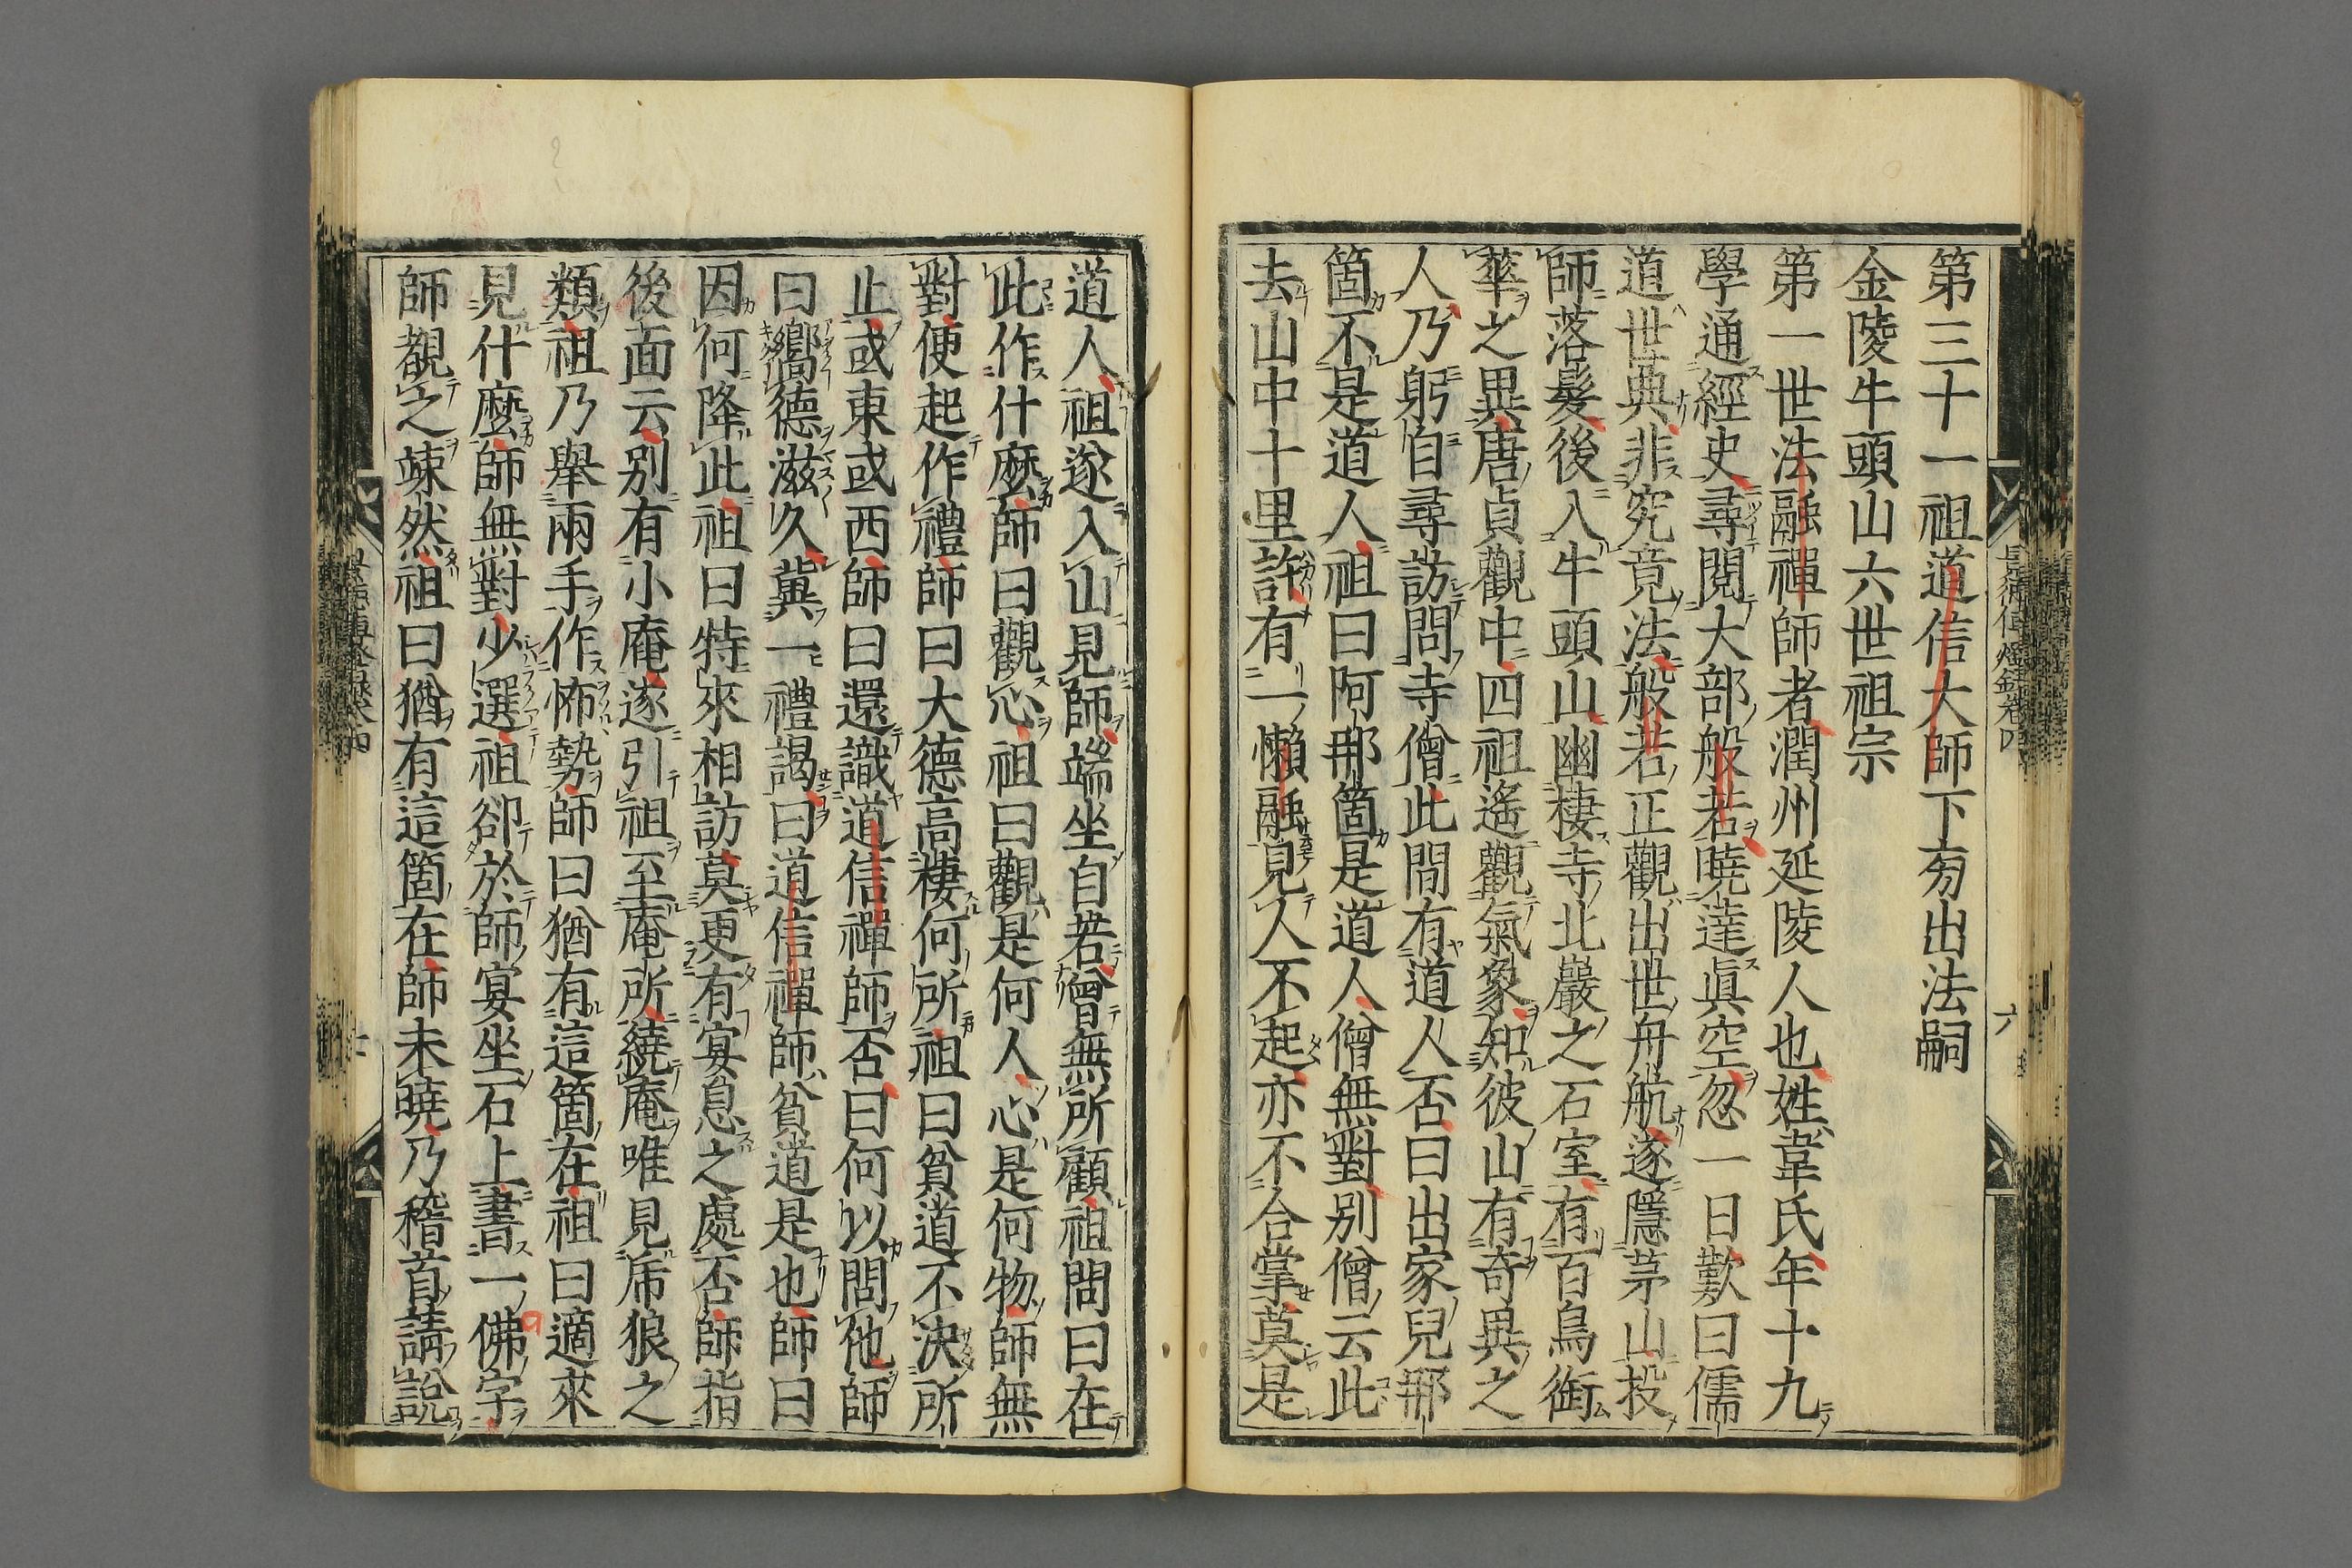 第三十一祖道信大師下旁出法嗣
金陵牛頭山六世祖宗
第一世法融禪師者潤州延陵人也姓韋氏年十九
學通經史尋閱大部般若曉達眞空忽一日歎曰儒
道世典非究竟法般若正觀出世舟航遂隱茅山投
師落髮後入牛頭山幽棲寺北巖之石室有百鳥銜
華之異唐貞觀中四祖遙觀氣象知彼山有奇異之
人乃躬自尋訪問寺僧此間有道人否曰出家兒那
箇不是道人祖曰阿那箇是道人僧無對別僧云此
去山中十里許有一懶融見人不起亦不合掌莫是
道人祖遂入山見師端坐自若曾無所顧祖問曰在
此作什麼師曰觀心祖曰觀是何人心是何物師無
對便起作禮師曰大德高棲何所祖曰貧道不決所
止或東或西師曰還識道信禪師否曰何以問他師
曰嚮德滋久冀一禮謁曰道信禪師貧道是也師曰
因何降此祖曰特來相訪莫更有宴息之處否師指
後面云別有小庵遂引祖至庵所繞庵唯見虎狼之
類祖乃擧兩手作怖勢師曰猶有這箇在祖曰適來
見什麼師無對少選祖卻於師宴坐石上書一佛字
師覩之竦然祖曰猶有這箇在師未曉乃稽首請說